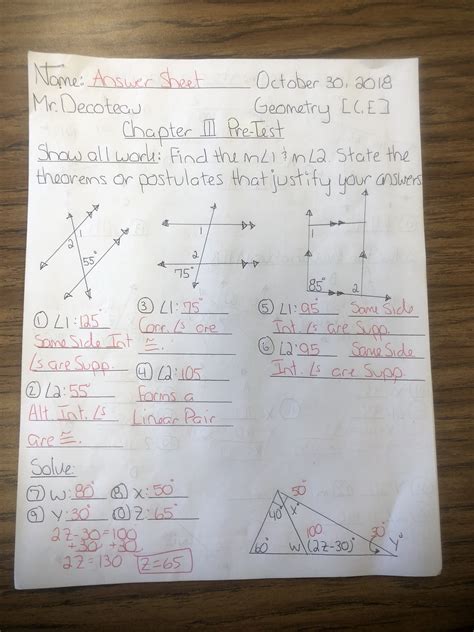 Name: Answer Sheet October 30, 2018
Mr. Decoteau Geometry [C,E]
Chapter III Pre-Test
Show all work: Find the m∠1 & m∠2. State the
theorems or postulates that justify your answers
1
2
55°
1
2
75°
1
85°
2
① ∠1: 125°
Same Side Int
∠s are Supp.
② ∠2: 55°
Alt. Int. ∠s
are ≅.
③ ∠1: 75°
Corr. ∠s are
≅.
④ ∠2: 105
Forms a
Linear Pair
⑤ ∠1: 95° Same Side
Int ∠s are Supp.
⑥ ∠2: 95 Same Side
Int. ∠s are Supp.
Solve:
⑦ W: 80° ⑧ X: 50°
⑨ Y: 30° ⑩ Z: 65°
2z-30=100
+30 +30
2z=130 z=65
50°
40° x°
100 30°
60° W (2z-30)° y°